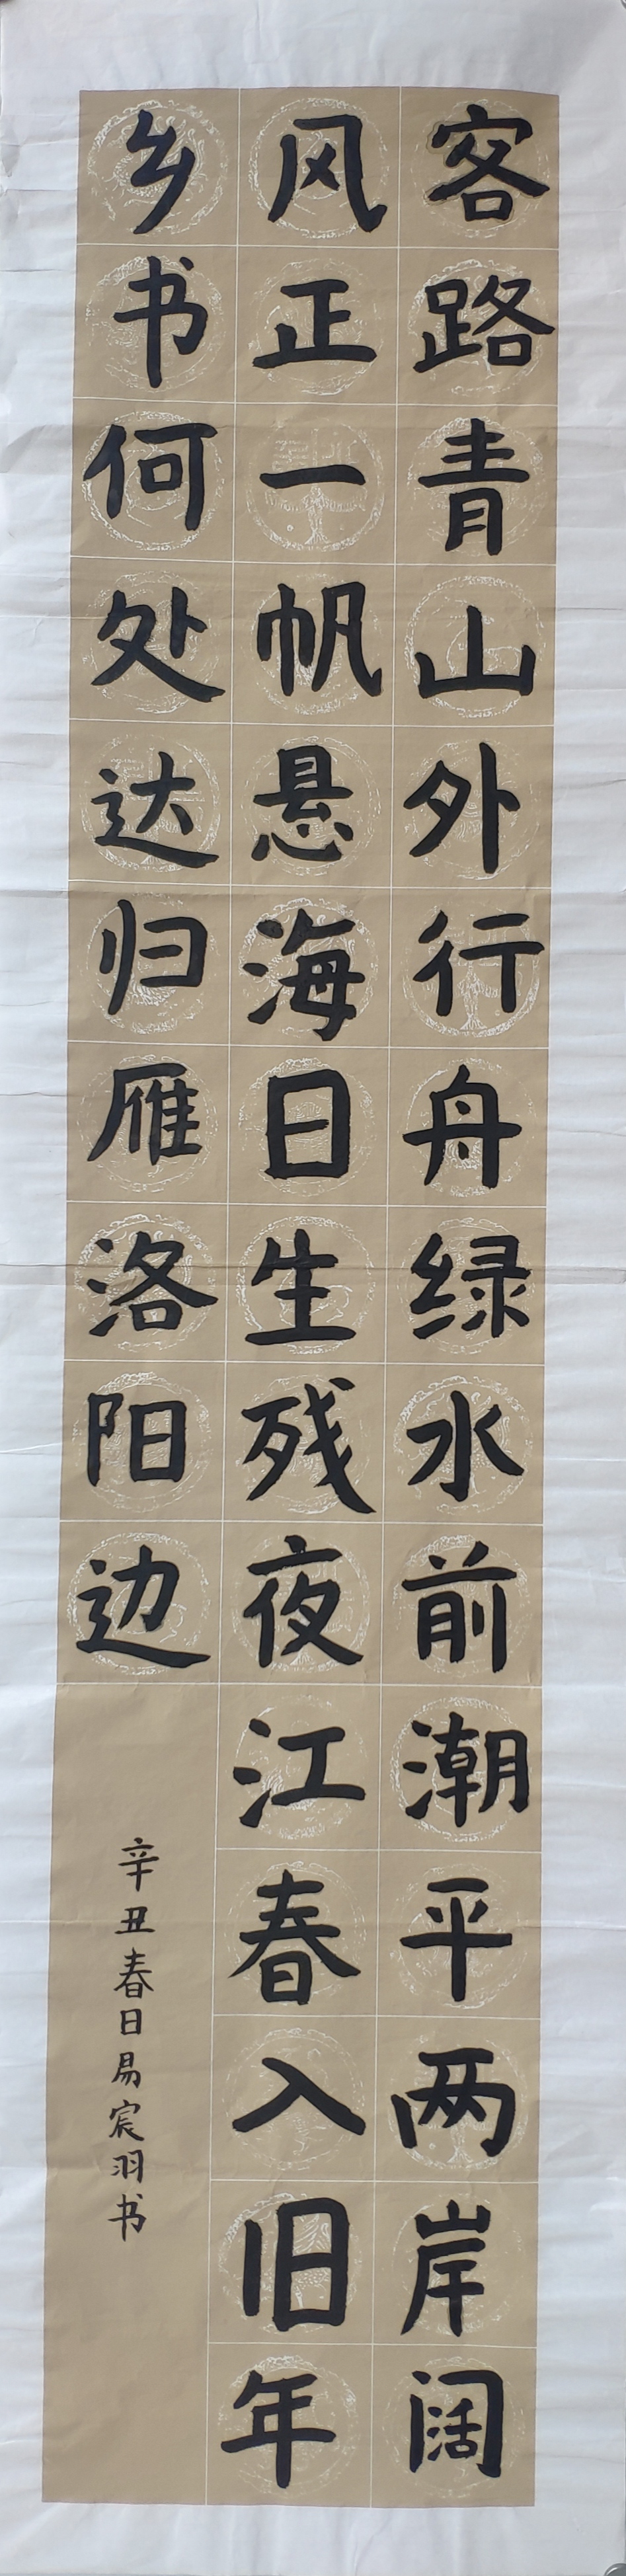 客路青山外行舟绿水前潮平两岸阔
风正一帆悬海日生残夜江春入旧年
乡书何处达归雁洛阳边
辛丑春日易宸羽书